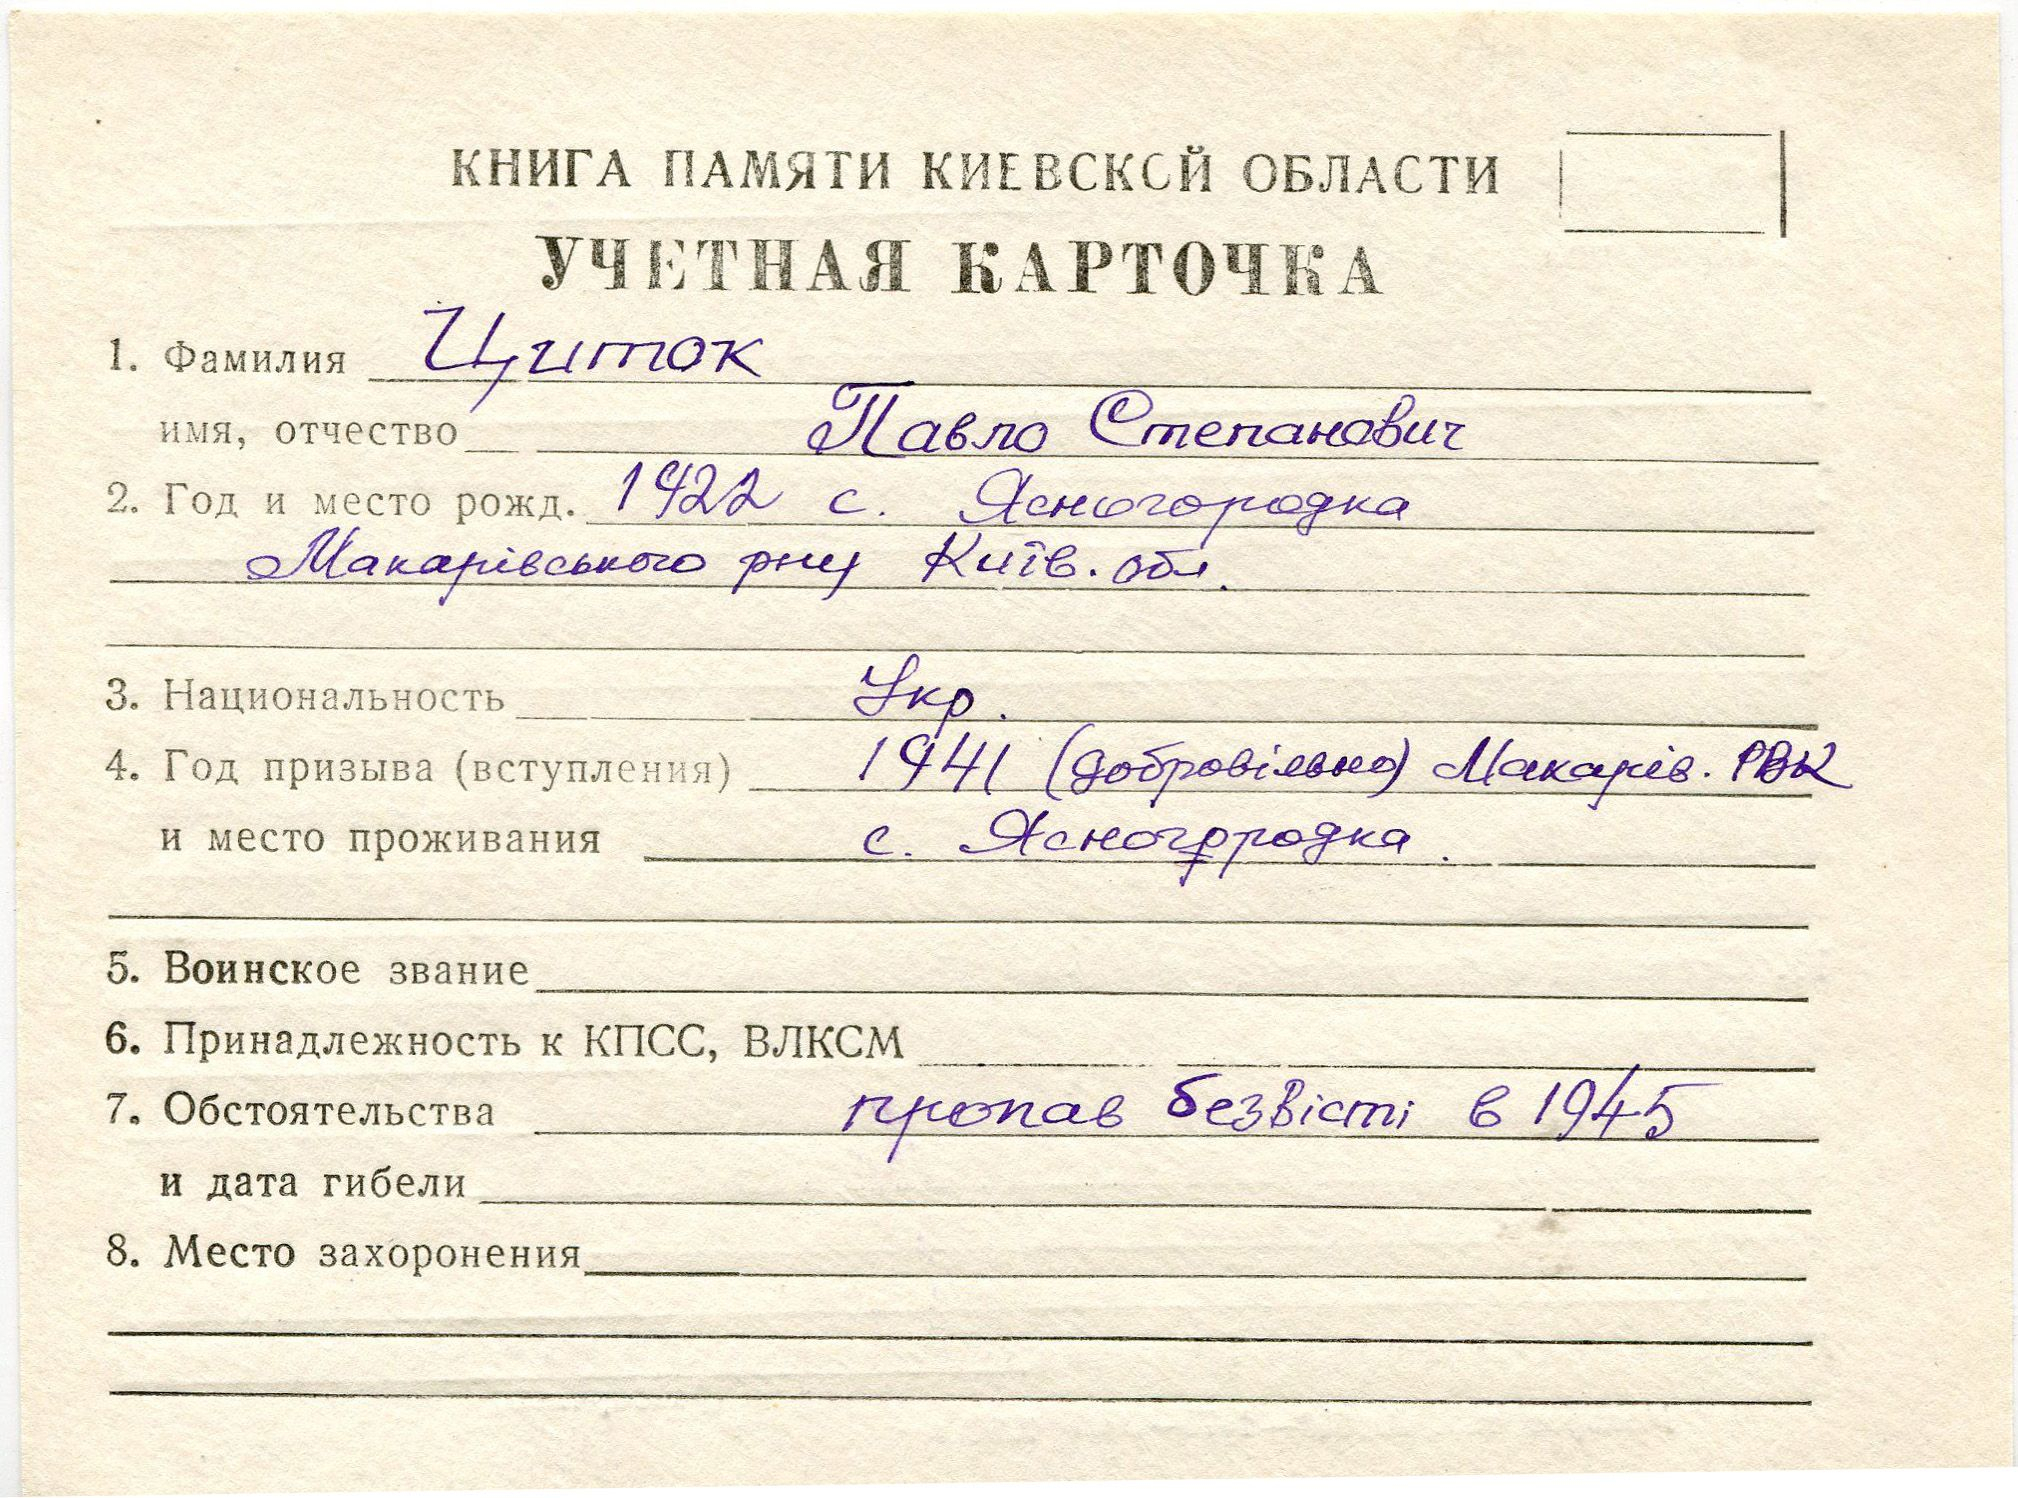 КНИГА ПАМЯТИ КИЕВСКОЙ ОБЛАСТИ
УЧЕТНАЯ КАРТОЧКА
1. Фамилия Циток
имя, отчество Павло Степанович
2. Год и место рожд. 1922 с. Ясногородка
Макарівського рну Київ. обл.
3. Национальность Укр.
4. Год призыва (вступления) 1941 (добровільно) Макарів. РВК
и место проживания с. Ясногородка.
5. Воинское звание
6. Принадлежность к КПСС, ВЛКСМ
7. Обстоятельства пропав безвісті в 1945
и дата гибели
8. Место захоронения